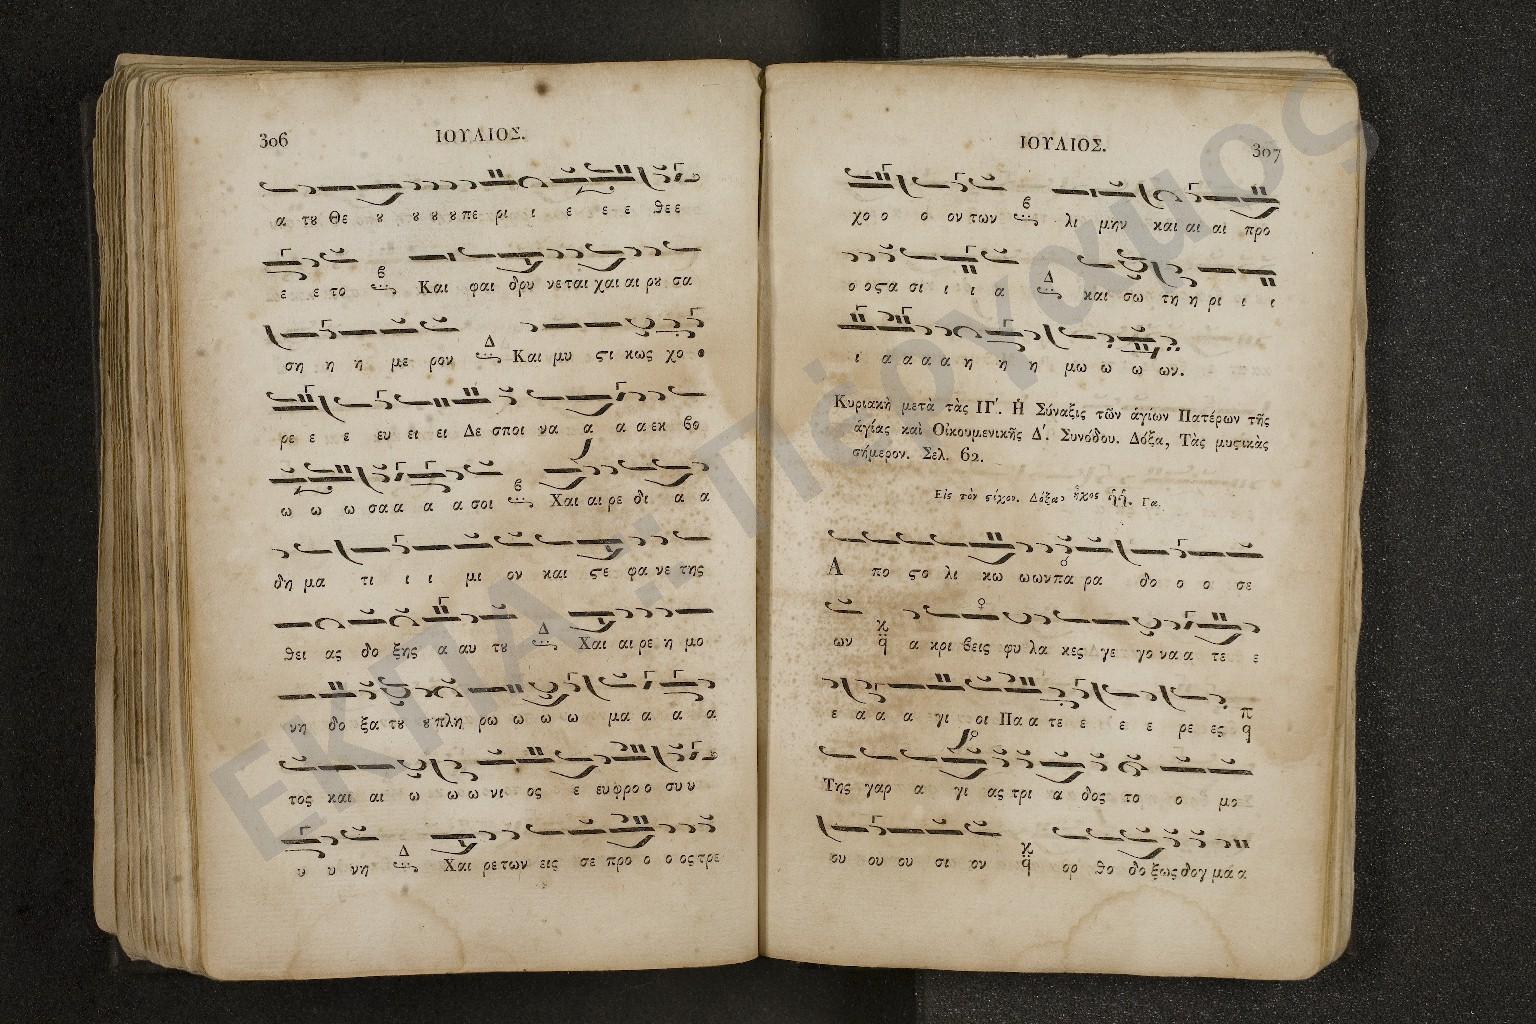 306
ΙΟΥΛΙΟΣ.
α τȣ Θε ȣ ȣ ȣ ȣ πε ρι ι ε ε ε θε ε
ε ε το Και φαι δρυ νε ται χαι αι ρȣ σα
ση η η με ρον Και μυ ϛι κως χο ο
ρε ε ε ευ ει ει Δε σποι να α α α εκ βο
ω ω ω σα α α α σοι Χαι αι ρε δι α α
δη μα τι ι ι μι ον και ϛε φα νε της
θει ας δο ξης α αυ τȣ Χαι αι ρε η μο
νη δο ξα τȣ ȣ πλη ρω ω ω ω μα α α α
τος και αι ω ω ω νι ος ε ευ φρο ο συ υ
υ υ νη Χαι ρε των εις σε προ ο ο ος τρε
ΙΟΥΛΙΟΣ.
307
χο ο ο ον των λι μην και αι αι προ
ο ο ϛα σι ι ι α και σω τη η ρι ι ι
ι α α α α η η η μω ω ω ων.
Κυριακὴ μετὰ τὰς ΙΓ′. Ἡ Σύναξις τῶν ἁγίων Πατέρων τῆς
ἁγίας καὶ Οἰκουμενικῆς Δ′. Συνόδου. Δόξα, Τὰς μυϛικὰς
σήμερον. Σελ. 62.
Εἰς τὸν ϛίχον. Δόξα, ἦχος Γα.
Α πο ϛο λι κω ω ων πα ρα δο ο ο σε
ων α κρι βεις φυ λα κες γε γο να α τε ε
ε α α α γι οι Πα α τε ε ε ε ρε ες
Της γαρ α γι ας τρι α δος το ο μο
ου ου ου σι ον ορ θο δο ξως δογ μα α
ΕΚΠΑ: Πέργαμος